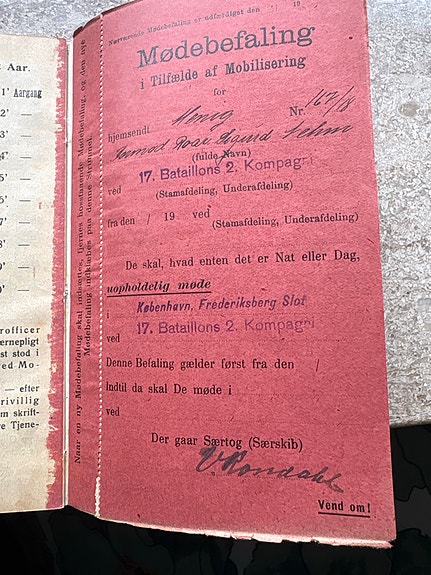 t Aar.
1' Aargang
2' —
3' —
4' —
5' —
6' —
7' —
8' —
9' —
rofficer
ærnepligt
st stod i
ved Mo-
— efter
rivillig
m skrift-
re Tjene-
Naar en ny Mødebefaling skal indsættes, fjernes hosstaaende Mødebefaling, og den nye
Mødebefaling indklæbes paa denne Strimmel.
Nærværende Mødebefaling er udfærdiget den 19
Mødebefaling
i Tilfælde af Mobilisering
for
hjemsendt Menig Nr. 167/18
Roar Sigurd
(fulde Navn)
ved 17. Bataillons 2. Kompagni
(Stamafdeling, Underafdeling)
fra den / 19 ved
(Stamafdeling, Underafdeling)
De skal, hvad enten det er Nat eller Dag,
uopholdelig møde
i København, Frederiksberg Slot
ved 17. Bataillons 2. Kompagni
Denne Befaling gælder først fra den /
Indtil da skal De møde i
ved
Der gaar Særtog (Særskib)
Vend om!